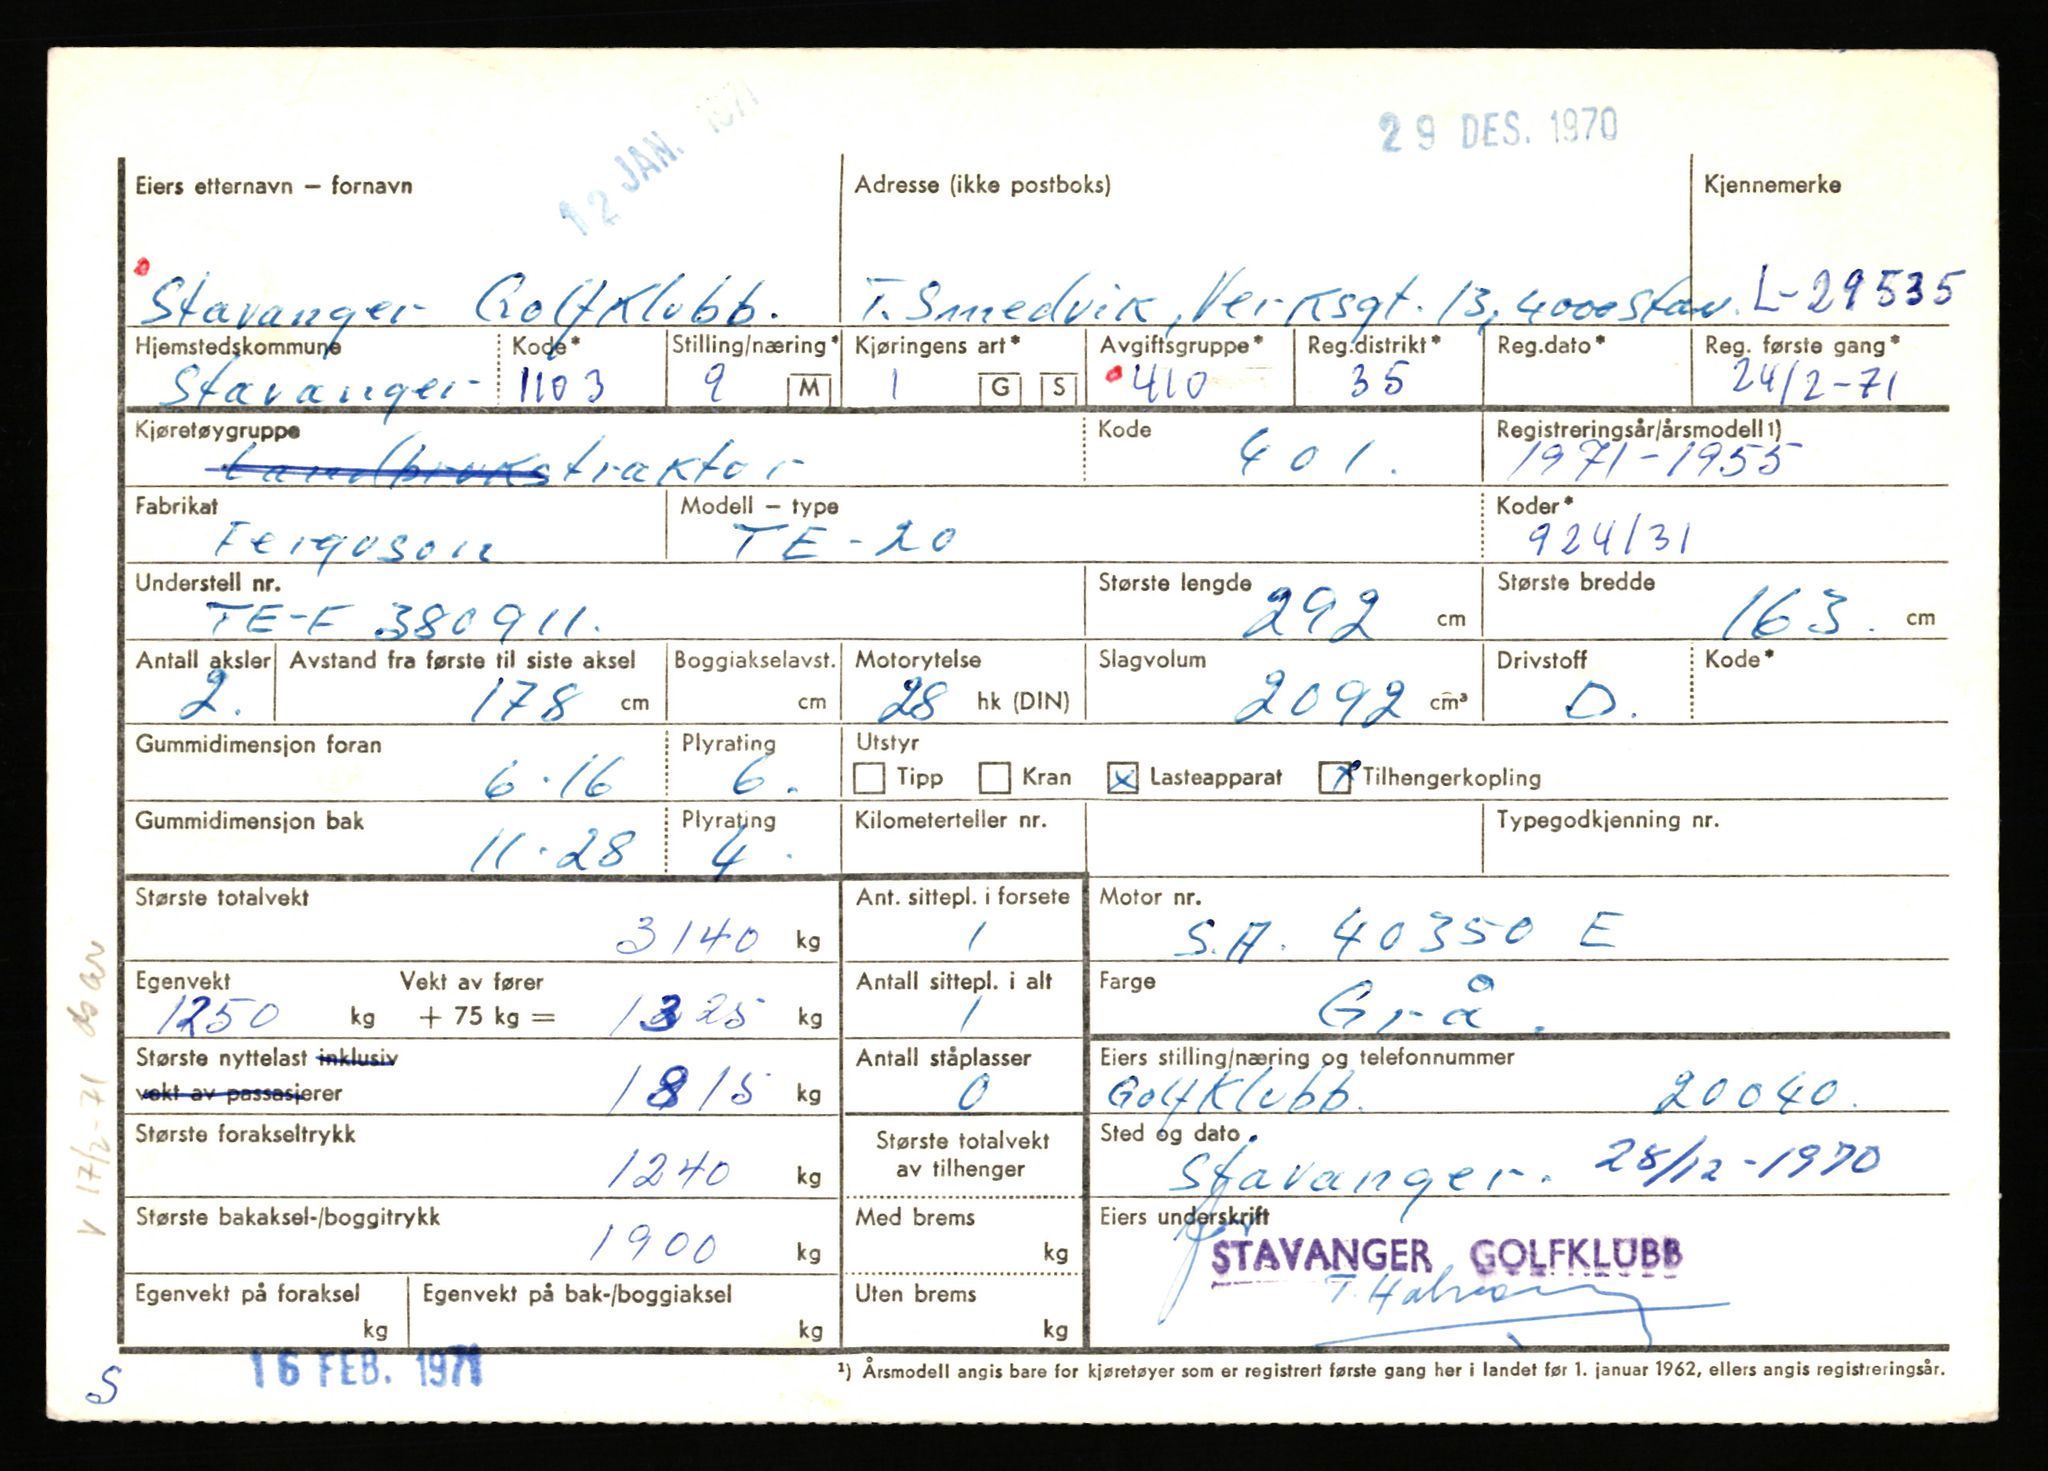 12 JAN. 1971
29 DES. 1970
Eiers etternavn – fornavn
Adresse (ikke postboks)
Kjennemerke
Stavanger Golfklubb.
T. Smedvik, Verksgt. 13, 4000 Stav.
L-29535
Hjemstedskommune
Kode*
Stilling/næring*
Kjøringens art*
Avgiftsgruppe*
Reg.distrikt*
Reg.dato*
Reg. første gang*
Stavanger
1103
9 M
1 G S
410
35
24/2-71
Kjøretøygruppe
Kode
Registreringsår/årsmodell1)
Landbrukstraktor
401.
1971-1955
Fabrikat
Modell – type
Koder*
Ferguson
TE-20
924/31
Understell nr.
Største lengde
Største bredde
TE-F 380911.
292 cm
163. cm
Antall aksler
Avstand fra første til siste aksel
Boggiakselavst.
Motorytelse
Slagvolum
Drivstoff
Kode*
2.
178 cm
cm
28 hk (DIN)
2092 cm³
D.
Gummidimensjon foran
Plyrating
Utstyr
6-16
6.
Tipp
Kran
x Lasteapparat
x Tilhengerkopling
Gummidimensjon bak
Plyrating
Kilometerteller nr.
Typegodkjenning nr.
11-28
4.
Største totalvekt
Ant. sittepl. i forsete
Motor nr.
3140 kg
1
S.A. 40350 E
Egenvekt
Vekt av fører
Antall sittepl. i alt
Farge
1250 kg
+ 75 kg = 1325 kg
1
Grå.
Største nyttelast inklusiv
vekt av passasjerer
1815 kg
Antall ståplasser
0
Eiers stilling/næring og telefonnummer
Golfklubb. 20040.
Største forakseltrykk
1240 kg
Største totalvekt
av tilhenger
Sted og dato
Stavanger. 28/12-1970
Største bakaksel-/boggitrykk
1900 kg
Med brems
kg
Eiers underskrift
for
STAVANGER GOLFKLUBB
Egenvekt på foraksel
kg
Egenvekt på bak-/boggiaksel
kg
Uten brems
kg
T.
16 FEB. 1971
1) Årsmodell angis bare for kjøretøyer som er registrert første gang her i landet før 1. januar 1962, ellers angis registreringsår.
S
V 17/2-71